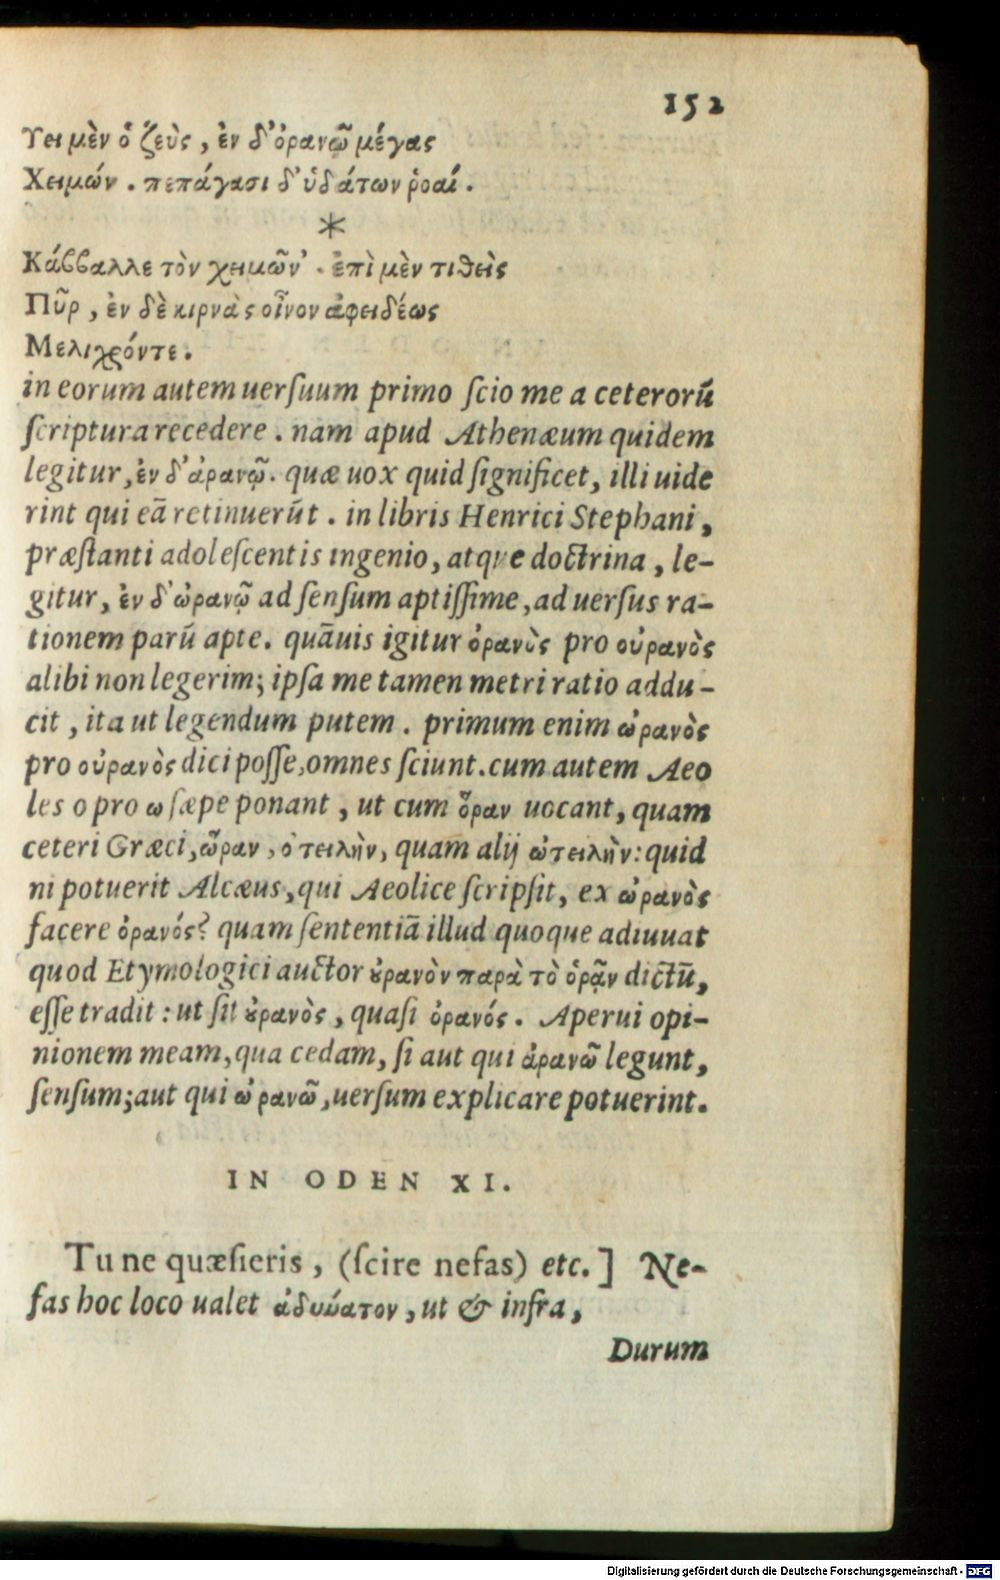 152
Ὕει μὲν ὁ ζεὺς, ἐν δ' ὀρανῷ μέγας
Χειμών. πεπάγασι δ' ὑδάτων ῥοαί.
*
Κάββαλλε τὸν χειμῶν'. ἐπὶ μὲν τιθεὶς
Πῦρ, ἐν δὲ κιρνὰς οἶνον ἀφειδέως
Μελιχρόντε.
in eorum autem uersuum primo scio me a ceterorũ
scriptura recedere. nam apud Athenæum quidem
legitur, ἐν δ' ἀρανῷ. quæ uox quid significet, illi uide
rint qui eã retinuerũt. in libris Henrici Stephani,
præstanti adolescentis ingenio, atque doctrina, le-
gitur, ἐν δ' ὠρανῷ ad sensum aptissime, ad uersus ra-
tionem parũ apte. quãuis igitur ὀρανὸς pro οὐρανὸς
alibi non legerim; ipsa me tamen metri ratio addu-
cit, ita ut legendum putem. primum enim ὠρανὸς
pro οὐρανὸς dici posse, omnes sciunt. cum autem Aeo
les ο pro ω sæpe ponant, ut cum ὄραν uocant, quam
ceteri Græci, ὥραν, ὀτειλὴν, quam alij ὠτειλὴν: quid
ni potuerit Alcæus, qui Aeolice scripsit, ex ὠρανὸς
facere ὀρανός? quam sententiã illud quoque adiuuat
quod Etymologici auctor ȣ̓ρανὸν παρὰ τὸ ὁρᾷν dictũ,
esse tradit: ut sit ȣ̓ρανὸς, quasi ὀρανός. Aperui opi-
nionem meam, qua cedam, si aut qui ἀρανῷ legunt,
sensum; aut qui ὠρανῷ, uersum explicare potuerint.
IN ODEN XI.
Tu ne quæsieris, (scire nefas) etc.] Ne-
fas hoc loco ualet ἀδυνατον, ut & infra,
Durum
Digitalisierung gefördert durch die Deutsche Forschungsgemeinschaft - DFG